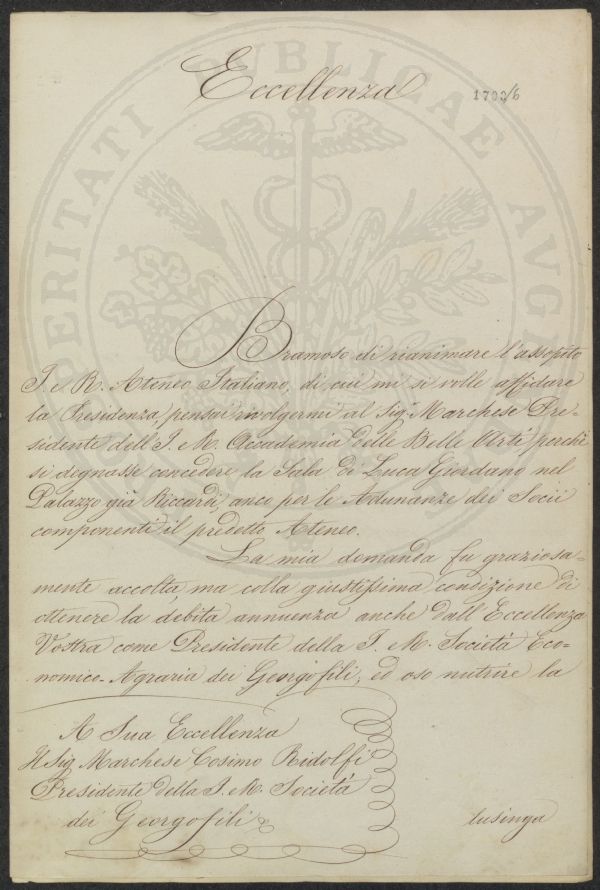 Eccellenza
1703/6
Bramoso di rianimare l'assopito
I. e R. Ateneo Italiano, di cui mi si volle affidare
la Presidenza, pensai rivolgermi al Sigr. Marchese Pre-
sidente dell'I. e R. Accademia delle Belle Arti perchè
si degnasse concedere la Sala di Luca Giordano nel
Palazzo già Riccardi, anco per le Adunanze dei Socii
componenti il predetto Ateneo.
La mia domanda fu graziosa-
mente accolta, ma colla giustissima condizione di
ottenere la debita annuenza anche dall'Eccellenza
Vostra come Presidente della I. e R. Società Eco-
nomico-Agraria dei Georgofili, ed oso nutrire la
A Sua Eccellenza
Il Sig. Marchese Cosimo Ridolfi
Presidente della I. e R. Società
dei Georgofili
lusinga